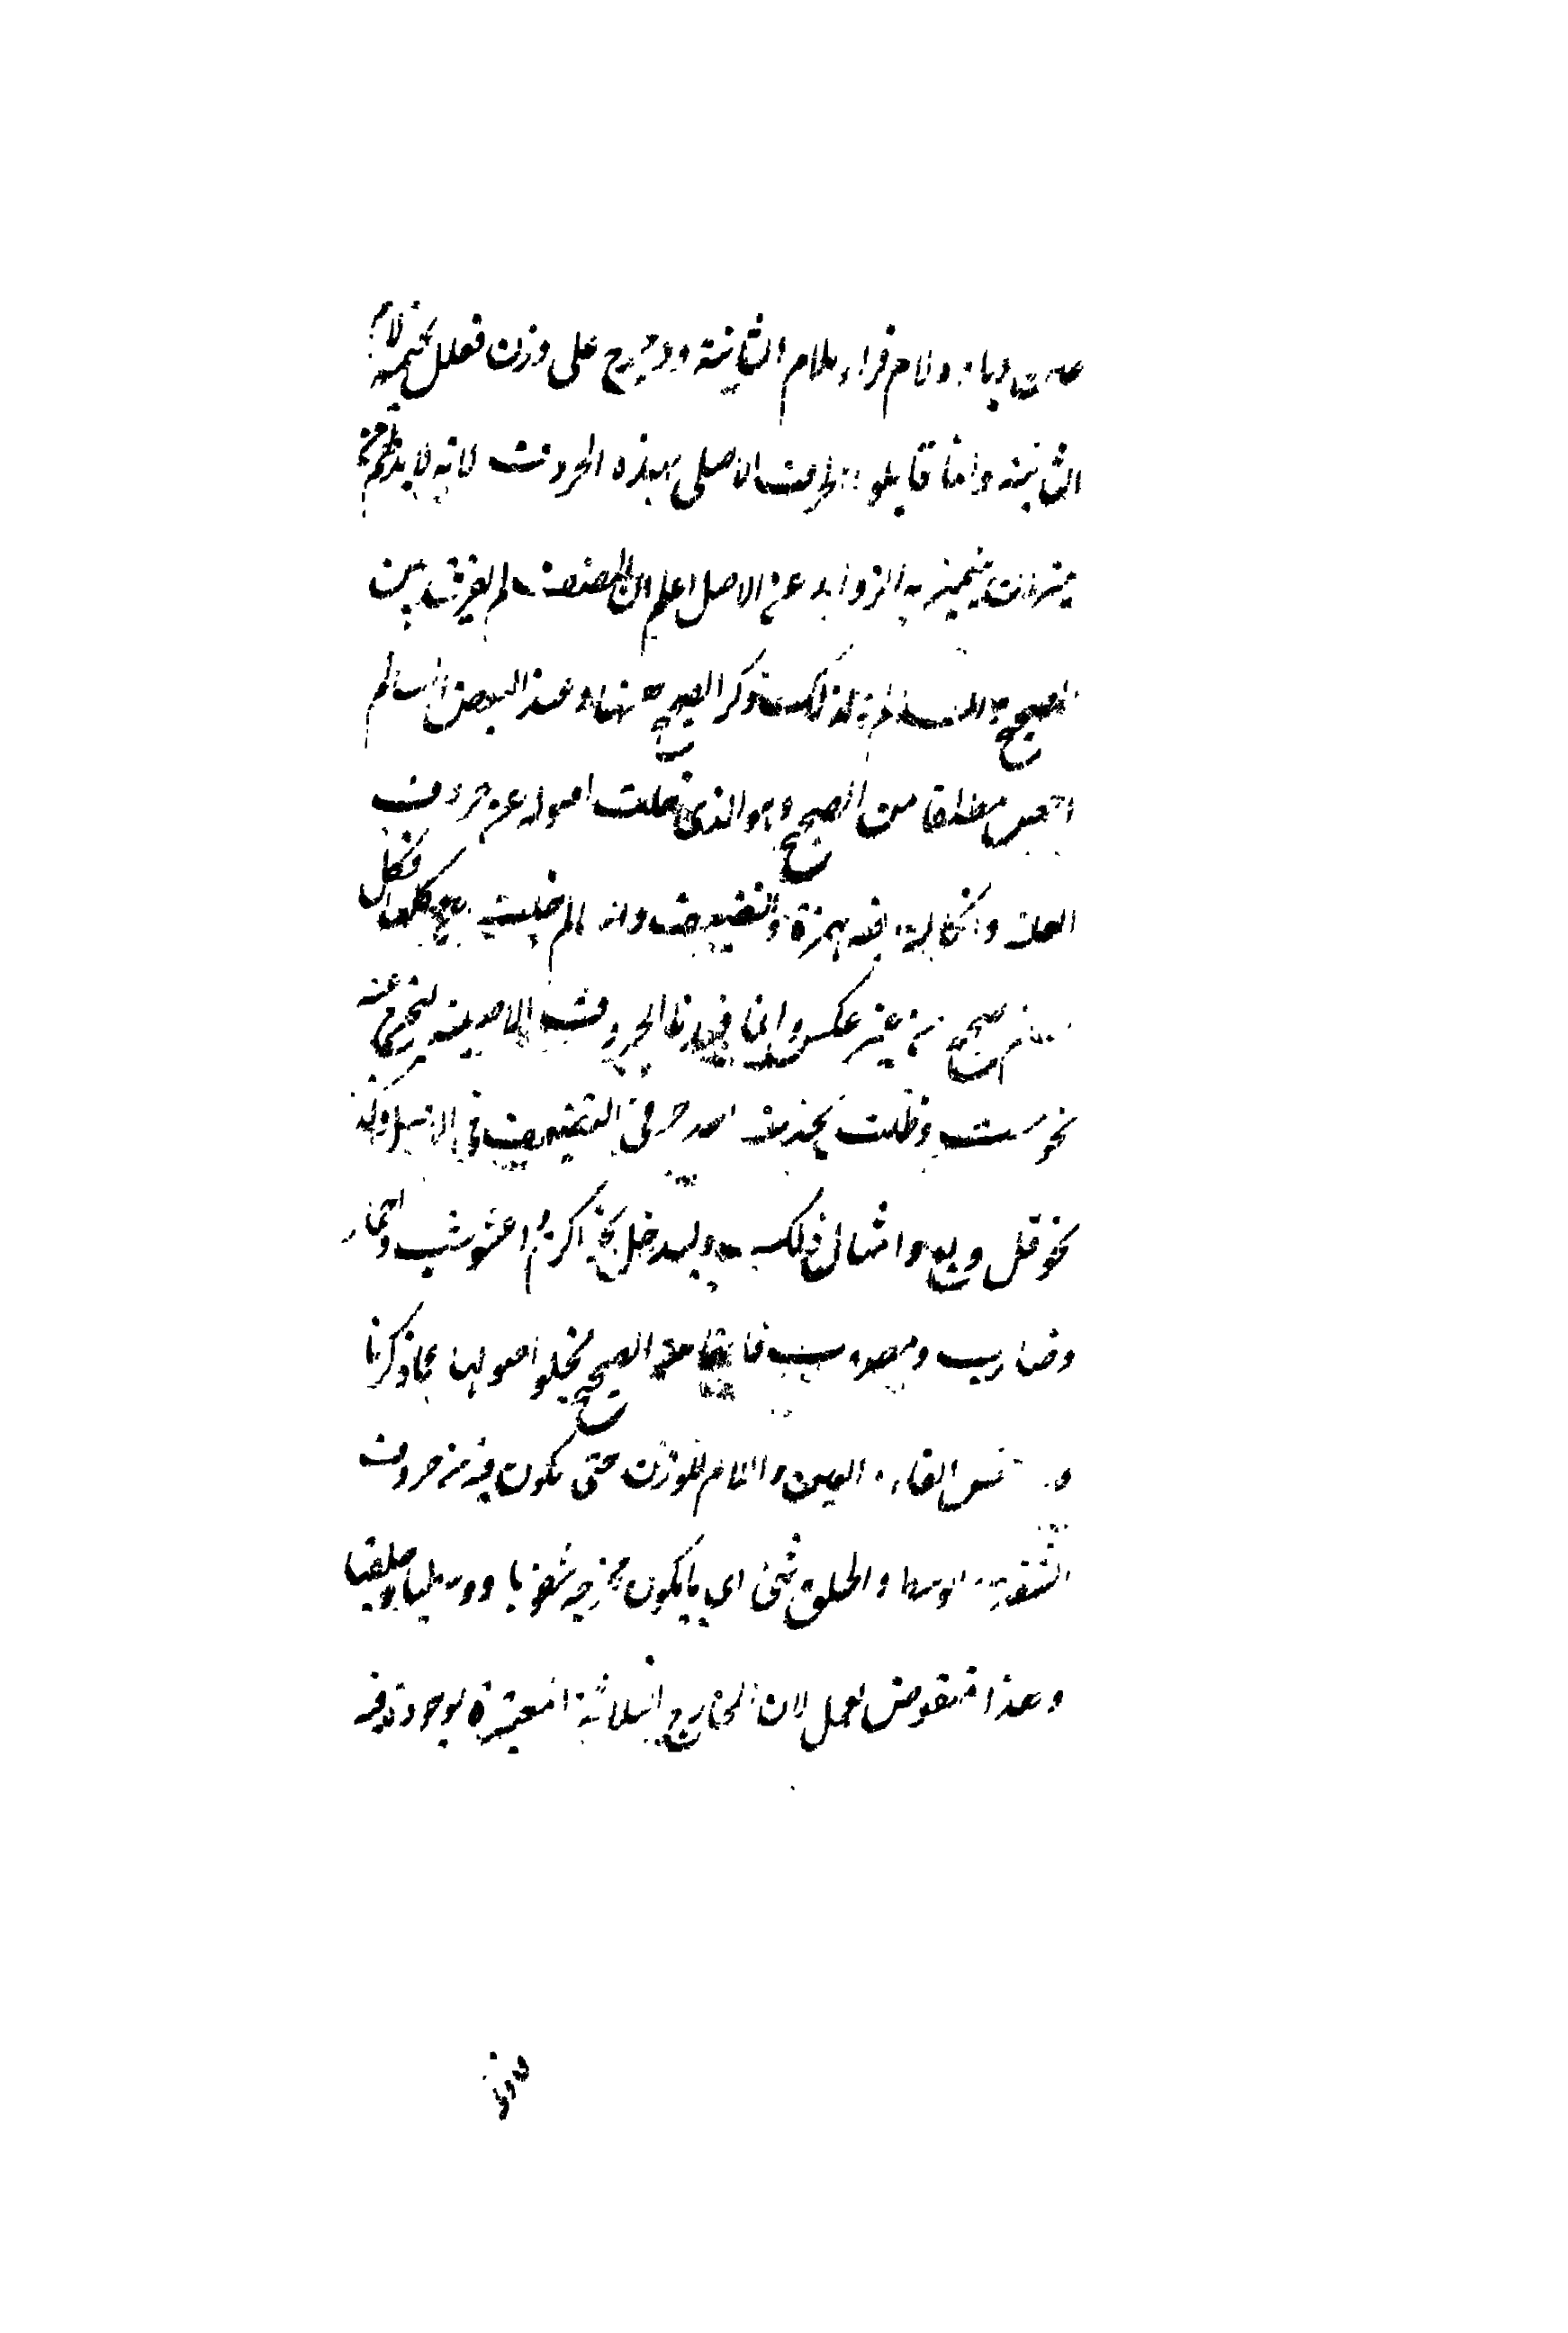 ولام فزاد لام الثانية ودحرج على وزن فعلل بتكرير لام
الثانية وانما قابلوا الحرف الاصلى بهذه الحروف لانه لا بد لهم من
ميزان يتميز به الزوايد عن الاصل اعلم ان المصنف لم يفرق بين
الصحيح والسالم فلذلك ذكر الصحيح ههنا وعند البعض السالم
اخص مطلقا من الصحيح وهو الذى خلت اصوله عن حروف
العلة وان كان فيه همزة والتضعيف وان لم فليس فكل
سالم صحيح من غير عكس وانما قيدنا الحروف بالاصلية ليخرج عنه
نحو مست وظلت بحذف احد حرفى التضعيف فى الاصل وكذا
نحو قل وبع وامثال ذلك وليدخل نحو اكرم واعشوشب واحمار
وضارب ومضروب فانها من الصحيح لخلو اصولها عما ذكرنا
الفاء والعين واللام للوزن حتى يكون فيه من حروف
الشفة والوسط والحلق شئ اى ما يكون مخرجه شفويا ووسطيا وحلقيا
وهذا منقوض بعمل لان المخارج الثلاثة المعتبرة موجودة فيه